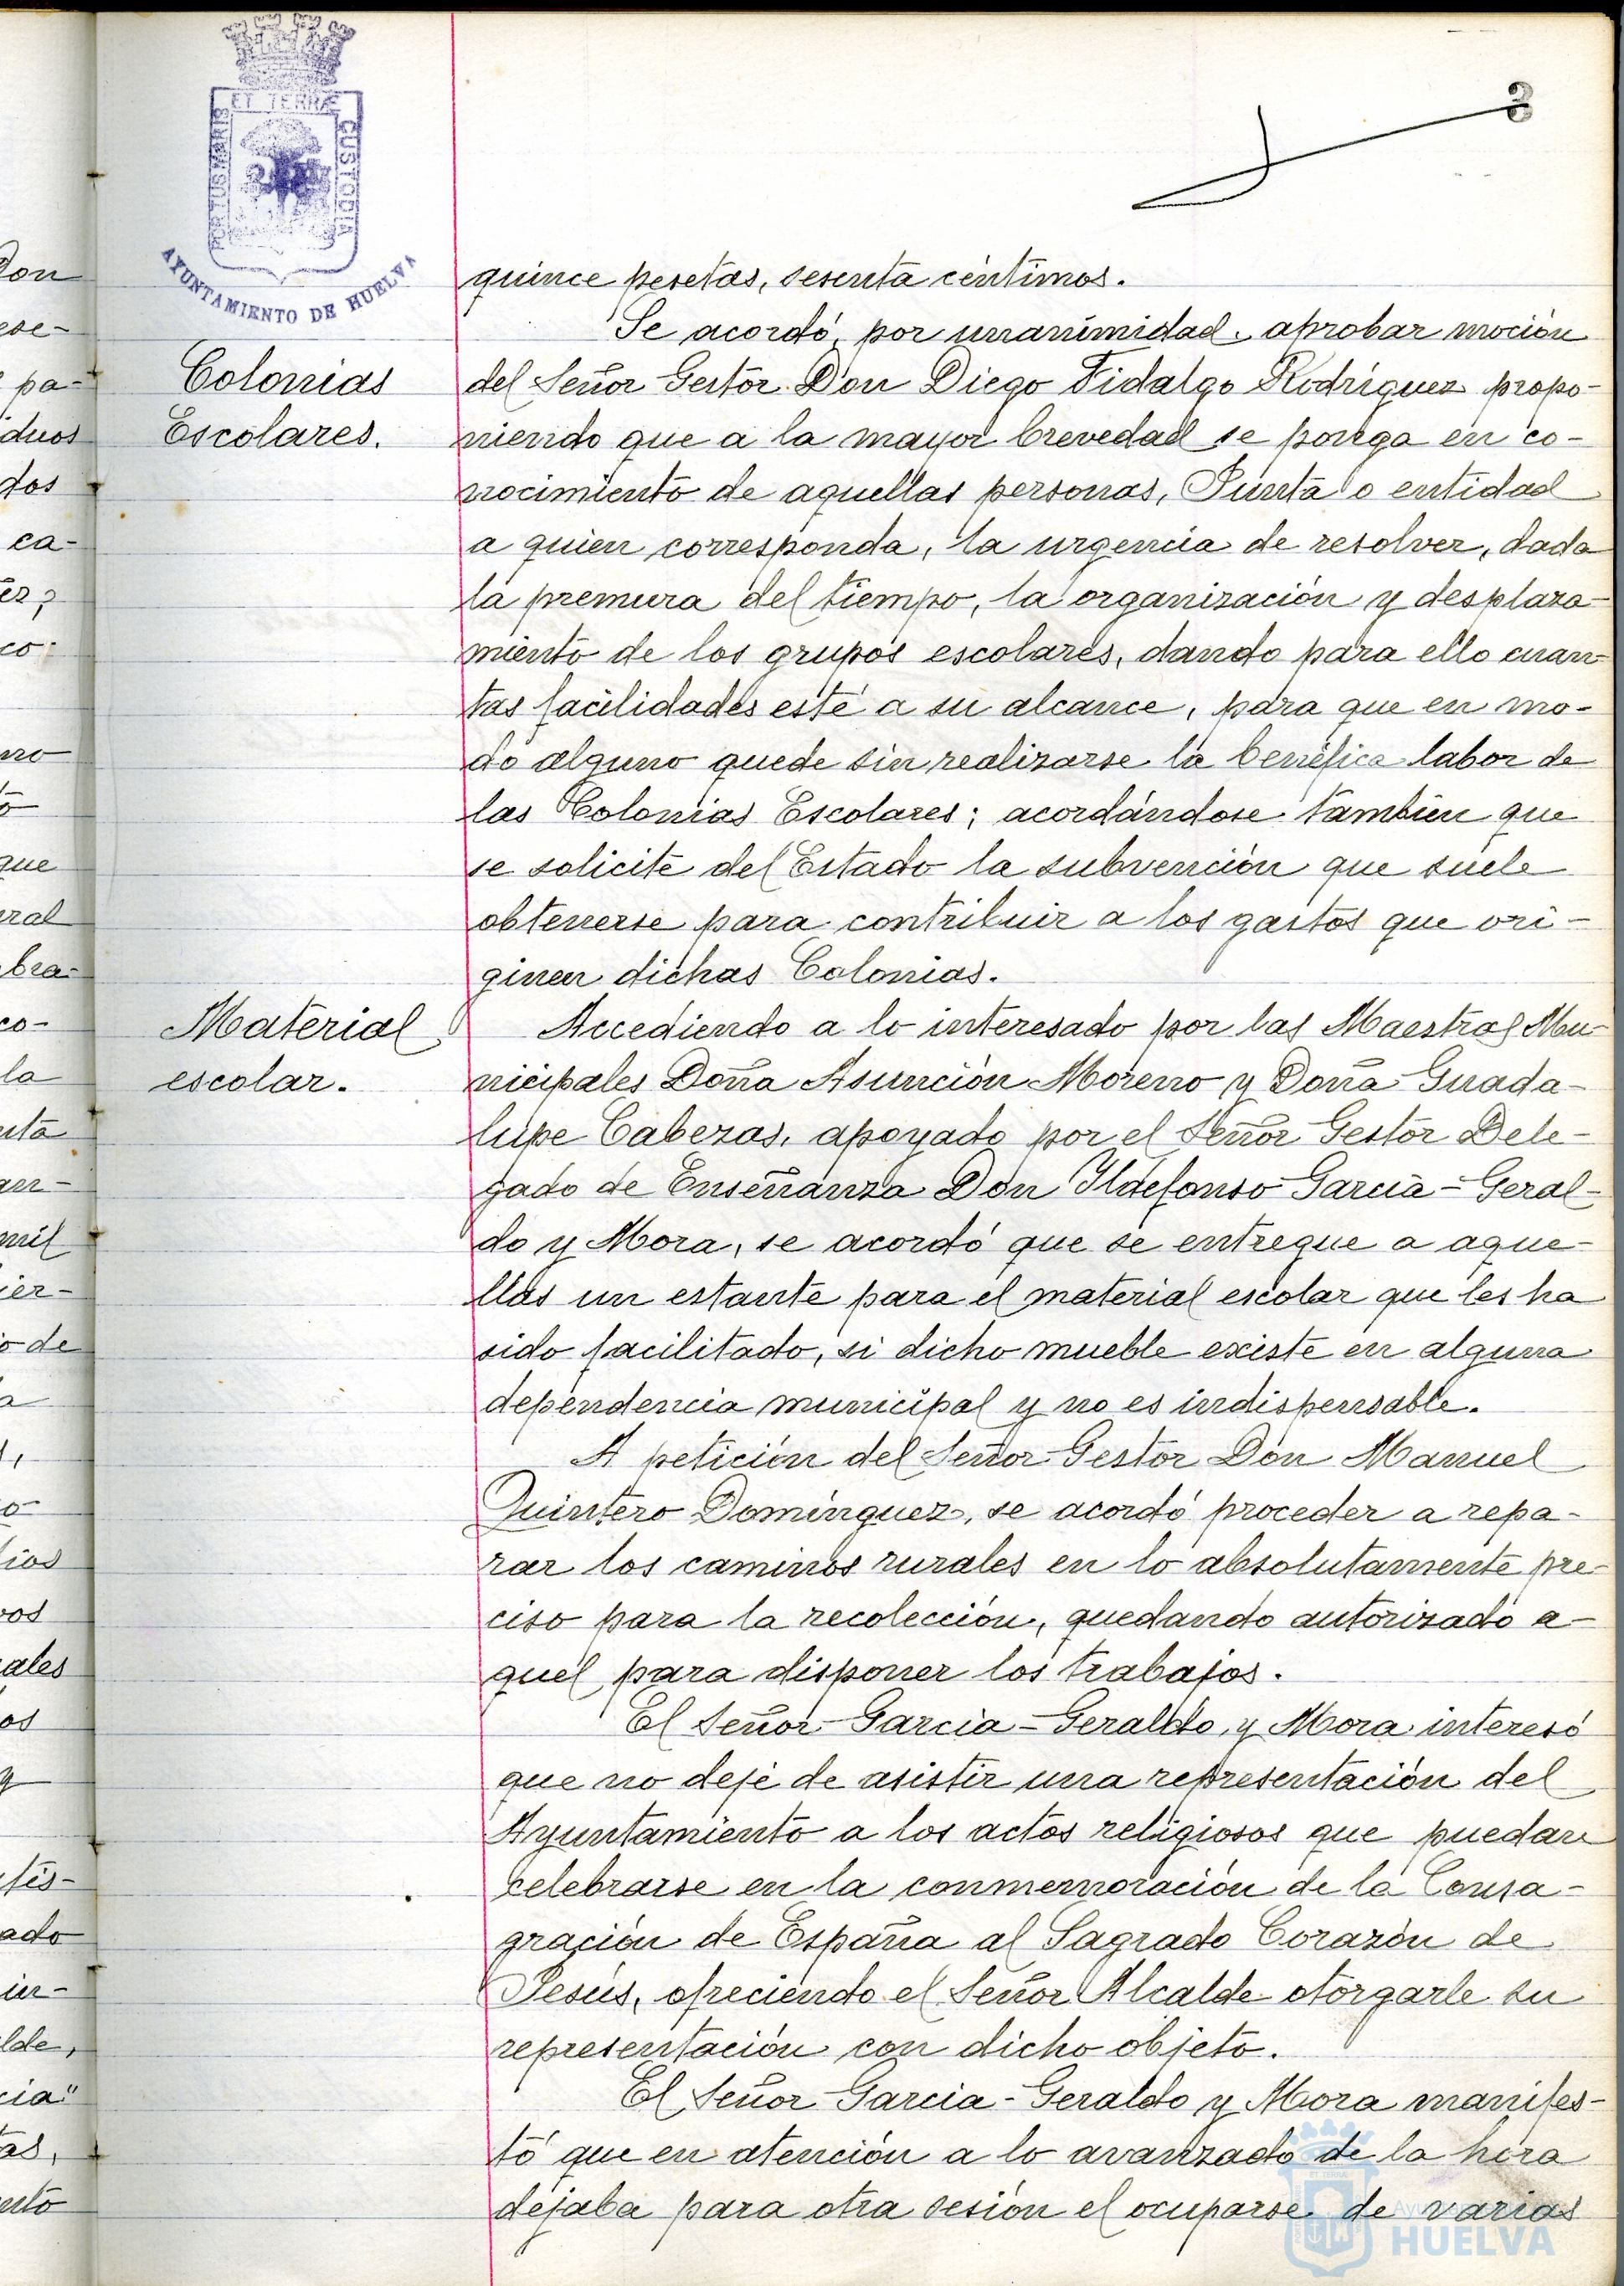 3
PORTUS MARIS
ET TERRÆ
CUSTODIA
AYUNTAMIENTO DE HUELVA
quince pesetas, sesenta céntimos.
Se acordó, por unanimidad, aprobar moción
Colonias
Escolares.
del Señor Gestor Don Diego Fidalgo Rodríguez propo-
niendo que a la mayor brevedad se ponga en co-
nocimiento de aquellas personas, Junta o entidad
a quien corresponda, la urgencia de resolver, dada
la premura del tiempo, la organización y desplaza-
miento de los grupos escolares, dando para ello cuan-
tas facilidades esté a su alcance, para que en mo-
do alguno quede sin realizarse la benéfica labor de
las Colonias Escolares; acordándose también que
se solicite del Estado la subvención que suele
obtenerse para contribuir a los gastos que ori-
ginen dichas Colonias.
Material
escolar.
Accediendo a lo interesado por las Maestras Mu-
nicipales Doña Asunción Moreno y Doña Guada-
lupe Cabezas, apoyado por el Señor Gestor Dele-
gado de Enseñanza Don Ildefonso García-Geral-
do y Mora, se acordó que se entregue a aque-
llas un estante para el material escolar que les ha
sido facilitado, si dicho mueble existe en alguna
dependencia municipal y no es indispensable.
A petición del Señor Gestor Don Manuel
Quintero Domínguez, se acordó proceder a repa-
rar los caminos rurales en lo absolutamente pre-
ciso para la recolección, quedando autorizado a-
quel para disponer los trabajos.
El Señor García-Geraldo y Mora interesó
que no deje de asistir una representación del
Ayuntamiento a los actos religiosos que puedan
celebrarse en la conmemoración de la Consa-
gración de España al Sagrado Corazón de
Jesús, ofreciendo el Señor Alcalde otorgarle su
representación con dicho objeto.
El Señor García-Geraldo y Mora manifes-
tó que en atención a lo avanzado de la hora
dejaba para otra sesión el ocuparse de varias
HUELVA